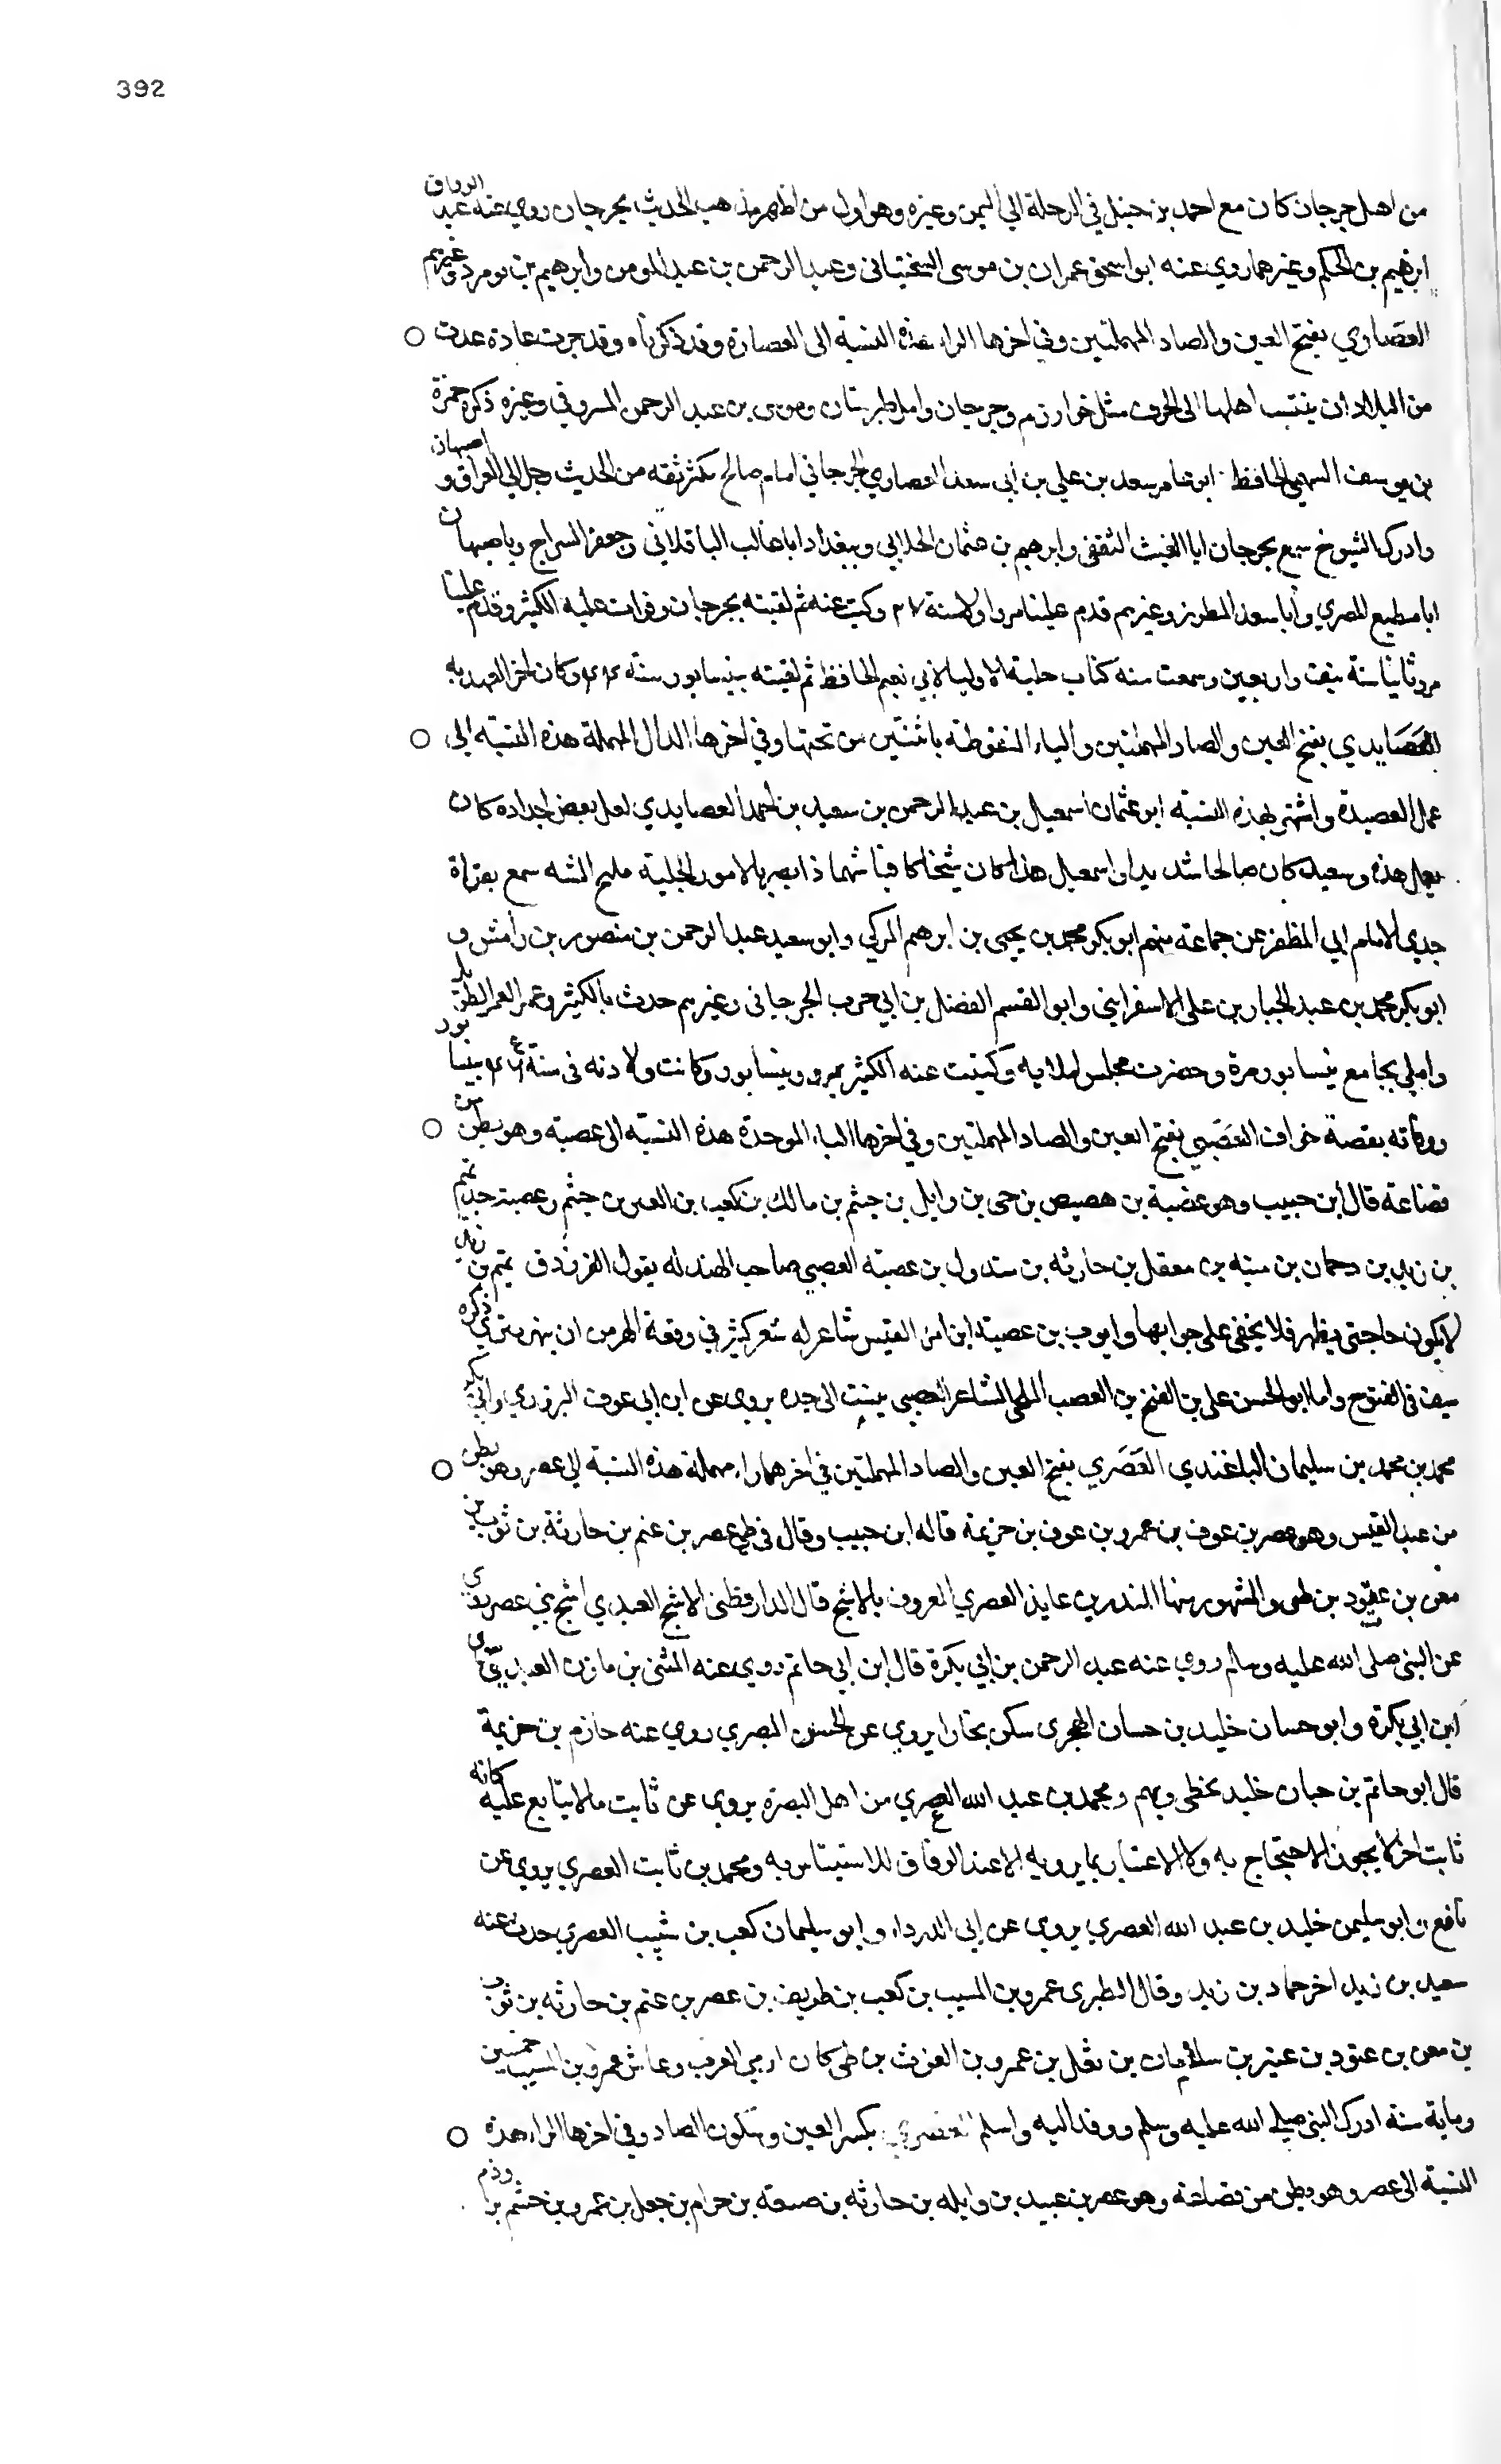 392
من اهل جرجان كان مع احمد بن حنبل في الرحلة الي اليمن وغيره وهو اول من اظهر مذهب الحديث بجرجان روي عنه عبد الرزاق
ابرهيم بن الحكم وغيرهما روي عنه ابو اسحق عمران بن موسى السختياني وعبد الرحمن بن عبد المومن وابرهيم بن نومرد وغيرهم
العصاري بفتح العين والصاد المهملتين وفي اخرها الراء هذه النسبة الى العصارة وقد ذكرناه وقد جرت عادة عدت
من البلاد ان ينتسب اهلها الى الحرف مثل خوارزم وجرجان وامل طبرستان وموسى بن عبد الرحمن وغيره ذكره حمزة
بن يوسف السهمي الحافظ ابو عامر سعد بن علي بن ابي سعد العصاري الجرجاني امام صالح مكثر ثقه من الحديث رحل الي العراق و اصبهان
وادرك الشيوخ سمع بجرجان ابا الغيث الثقفي وابرهيم بن عثمان الخلالي وببغداد ابا غالب الباقلاني وجعفر السراج وباصبهان
ابا مطيع المصري وابا سعد المطرز وغيرهم قدم علينا مرو اولا سنة وكتبت عنه ثم لقيته بجرجان وقرات عليه الكثير وقدم علينا
مرو ثانيا سنة نيف واربعين وسمعت منه كتاب حلية الاوليا لابي نعيم الحافظ ثم لقيته بنيسابور سنة وكان اخر العهد به
العصايدي بفتح العين والصاد المهملتين والياء المنقوطة باثنتين من تحتها وفي اخرها الدال المهملة هذه النسبة الى
عمل العصيدة واشتهر بهذه النسبة ابو عثمان اسمعيل بن عبد الرحمن بن سعيد بن احمد العصايدي لعل بعض اجداده كان
يعمل هذه وسعيد كان صالحا واسمعيل هذا كان شيخا كافيا شهما ذا بصر بالامور الجلية مليح الشبه سمع بقراة
جدي الامام ابي المظفر عن جماعة منهم ابو بكر محمد بن يحيى بن ابرهيم المزكي وابو سعيد عبد الرحمن بن منصور بن رامش و
ابو بكر محمد بن عبد الجبار بن علي الاسفرايني وابو القسم الفضل بن ابي حرب الجرجاني وغيرهم حدث بالكثير وعمر العمر الطويل
واملي بجامع نيسابور مرة وحضرت مجلس املايه وكتبت عنه الكثير بمرو ونيسابور وكانت ولادته في سنة بنيسابور
ووفاته بقصة خواف العصبي بفتح العين والصاد المهملتين وفي اخرها الباء الموحدة هذه النسبة الى عصبة وهو بطن من
قضاعة قال ابن حبيب وهو عصبة بن هصيص بن حي بن وايل بن جشم بن مالك بن كعب بن القين بن جشم وعصبة جد تميم
بن زيد بن دحمان بن منبه بن معقل بن حارثه بن سندول بن عصبة العصبي صاحب الهند له يقول الفرزدق تميم بن زيد
لا يكون حاجتي بظهر فلا يخفى على جوابها وايوب بن عصبة ابن امرء القيس شاعر له شعر كثير في وقعة الهرمزان بنهر تيري ذكره
سيف في الفتوح واما ابو الحسن علي بن الفتح بن العصب الملحي الشاعر العصبي ينسب الى جده يروي عن ابن ابي عوف البزوري وابي بكر
محمد بن محمد بن سليمان الباغندي العصري بفتح العين والصاد المهملتين في اخرهما راء مهملة هذه النسبة الي عصر وهو بطن
من عبد القيس وهو عصر بن عوف بن عمرو بن عوف بن خزيمة قاله ابن حبيب وقال في طي عصر بن غنم بن حارثة بن ثوب بن
معن بن عتود بن طي والمشهور منها المنذر بن عايذ العصري المعروف بالاشج قال الدارقطني الاشج العبدي اشج بني عصر يروي
عن النبي صلى الله عليه وسلم روي عنه عبد الرحمن بن ابي بكرة قال ابن ابي حاتم روى عنه المثنى بن مازن العبدي
ابن ابي بكرة وابو حسان خليد بن حسان الهجري سكن بخارا يروي عن الحسن البصري روي عنه حازم بن خزيمة
قال ابو حاتم بن حبان خليد يخطي ويهم ومحمد بن عبد الله العصري من اهل البصرة يروي عن ثابت ما لا يتابع عليه كانه
ثابت اخر لا يجوز الاحتجاج به ولا الاعتبار بما يرويه الا عند الوفاق للاستيناس به ومحمد بن ثابت العصري يروي عن
نافع وابو سليمن خليد بن عبد الله العصري يروي عن ابي الدرداء وابو سليمان كعب بن شبيب العصري حدث عنه
سعيد بن زيد اخر حماد بن زيد وقال الطبري عمرو بن المسيب بن كعب بن طريف بن عصر بن غنم بن حارثه بن ثوب
بن معن بن عتود بن عنيز بن سلامان بن ثعل بن عمرو بن الغوث بن طي كان ارمي العرب وعاش عمرو بن المسيب خمسين
وماية سنة ادرك النبي صلي الله عليه وسلم ووفد اليه واسلم العصري بكسر العين وسكون الصاد وفي اخرها الراء هذه
النسبة الى عصر وهو بطن من قضاعة وهو عصر بن عبيد بن وايله بن حارثه بن ضبيعة بن حرام بن جعل بن عمرو بن جشم بن وذم